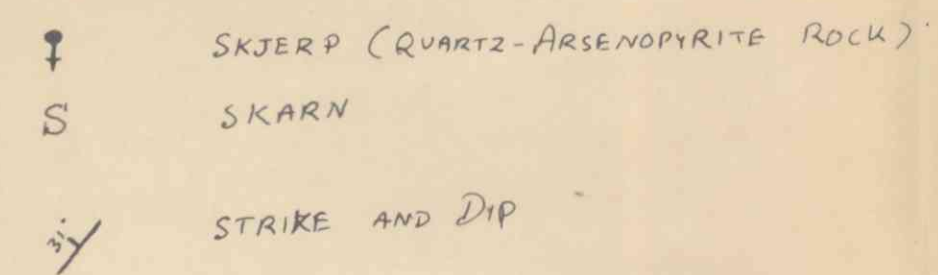 SKJERP (QUARTZ-ARSENOPYRITE ROCK)
S SKARN
31 STRIKE AND DIP